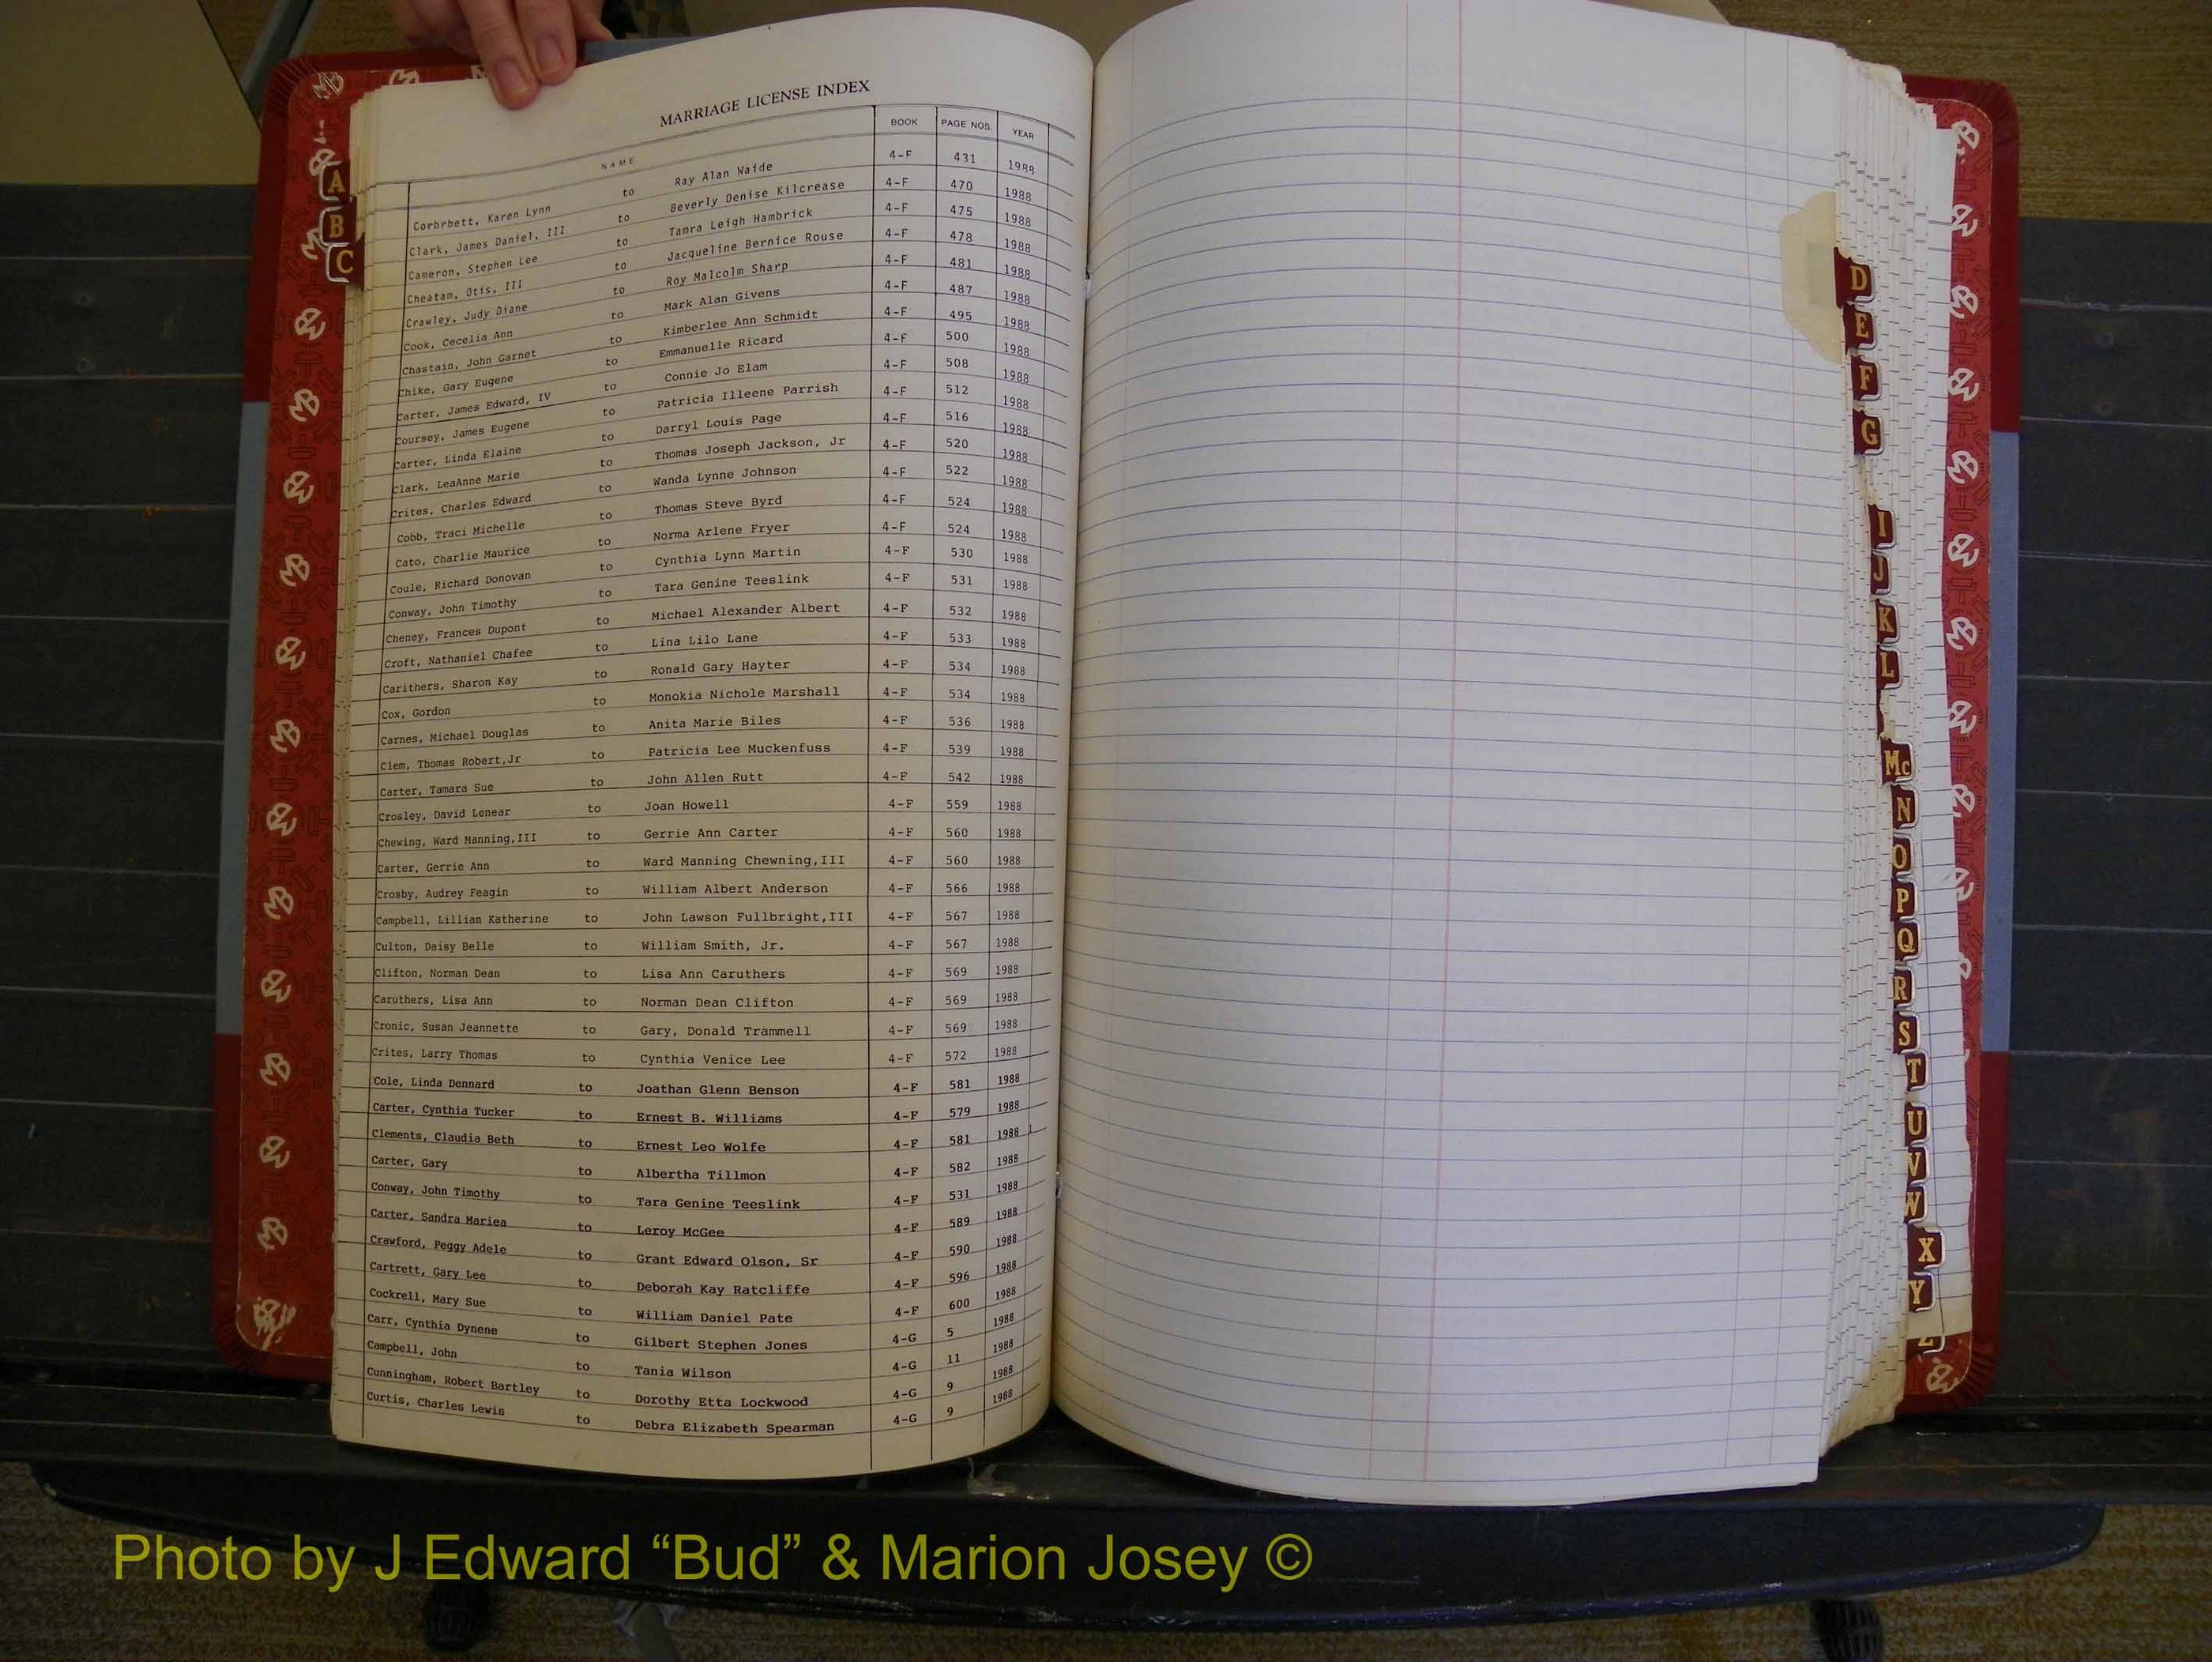 MARRIAGE LICENSE INDEX
NAME BOOK PAGE NOS. YEAR
Corbrbett, Karen Lynn to Ray Alan Waide 4-F 431 1988
Clark, James Daniel, III to Beverly Denise Kilcrease 4-F 470 1988
Cameron, Stephen Lee to Tamra Leigh Hambrick 4-F 475 1988
Cheatam, Otis, III to Jacqueline Bernice Rouse 4-F 478 1988
Crawley, Judy Diane to Roy Malcolm Sharp 4-F 481 1988
Cook, Cecelia Ann to Mark Alan Givens 4-F 487 1988
Chastain, John Garnet to Kimberlee Ann Schmidt 4-F 495 1988
Chike, Gary Eugene to Emmanuelle Ricard 4-F 500 1988
Carter, James Edward, IV to Connie Jo Elam 4-F 508 1988
Coursey, James Eugene to Patricia Illeene Parrish 4-F 512 1988
Carter, Linda Elaine to Darryl Louis Page 4-F 516 1988
Clark, LeaAnne Marie to Thomas Joseph Jackson, Jr 4-F 520 1988
Crites, Charles Edward to Wanda Lynne Johnson 4-F 522 1988
Cobb, Traci Michelle to Thomas Steve Byrd 4-F 524 1988
Cato, Charlie Maurice to Norma Arlene Fryer 4-F 524 1988
Coule, Richard Donovan to Cynthia Lynn Martin 4-F 530 1988
Conway, John Timothy to Tara Genine Teeslink 4-F 531 1988
Cheney, Frances Dupont to Michael Alexander Albert 4-F 532 1988
Croft, Nathaniel Chafee to Lina Lilo Lane 4-F 533 1988
Carithers, Sharon Kay to Ronald Gary Hayter 4-F 534 1988
Cox, Gordon to Monokia Nichole Marshall 4-F 534 1988
Carnes, Michael Douglas to Anita Marie Biles 4-F 536 1988
Clem, Thomas Robert,Jr to Patricia Lee Muckenfuss 4-F 539 1988
Carter, Tamara Sue to John Allen Rutt 4-F 542 1988
Crosley, David Lenear to Joan Howell 4-F 559 1988
Chewing, Ward Manning,III to Gerrie Ann Carter 4-F 560 1988
Carter, Gerrie Ann to Ward Manning Chewning,III 4-F 560 1988
Crosby, Audrey Feagin to William Albert Anderson 4-F 566 1988
Campbell, Lillian Katherine to John Lawson Fullbright,III 4-F 567 1988
Culton, Daisy Belle to William Smith, Jr. 4-F 567 1988
Clifton, Norman Dean to Lisa Ann Caruthers 4-F 569 1988
Caruthers, Lisa Ann to Norman Dean Clifton 4-F 569 1988
Cronic, Susan Jeannette to Gary, Donald Trammell 4-F 569 1988
Crites, Larry Thomas to Cynthia Venice Lee 4-F 572 1988
Cole, Linda Dennard to Joathan Glenn Benson 4-F 581 1988
Carter, Cynthia Tucker to Ernest B. Williams 4-F 579 1988
Clements, Claudia Beth to Ernest Leo Wolfe 4-F 581 1988
Carter, Gary to Albertha Tillmon 4-F 582 1988
Conway, John Timothy to Tara Genine Teeslink 4-F 531 1988
Carter, Sandra Mariea to Leroy McGee 4-F 589 1988
Crawford, Peggy Adele to Grant Edward Olson, Sr 4-F 590 1988
Cartrett, Gary Lee to Deborah Kay Ratcliffe 4-F 596 1988
Cockrell, Mary Sue to William Daniel Pate 4-F 600 1988
Carr, Cynthia Dynene to Gilbert Stephen Jones 4-G 5 1988
Campbell, John to Tania Wilson 4-G 11 1988
Cunningham, Robert Bartley to Dorothy Etta Lockwood 4-G 9 1988
Curtis, Charles Lewis to Debra Elizabeth Spearman 4-G 9 1988
A
B
C
D
E
F
G
I
J
K
L
Mc
N
O
P
Q
R
S
T
U
V
W
X
Y
Z
Photo by J Edward “Bud” & Marion Josey ©